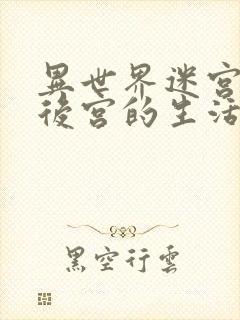 異世界迷宮
後宮的生活
黑空行雲